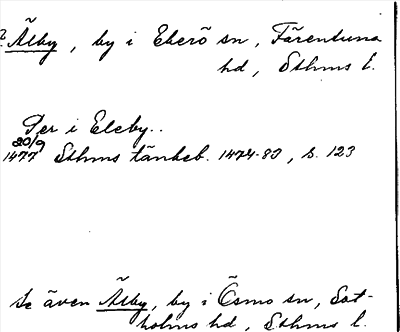 ? Älby, by i Ekerö sn, Färentuna
hd, Sthms l.
Per i Eleby..
20/9
1477 Sthms tänkeb. 1474-83, s. 123
Se även Älby, by i Ösmo sn, Sot-
holms hd, Sthms l.